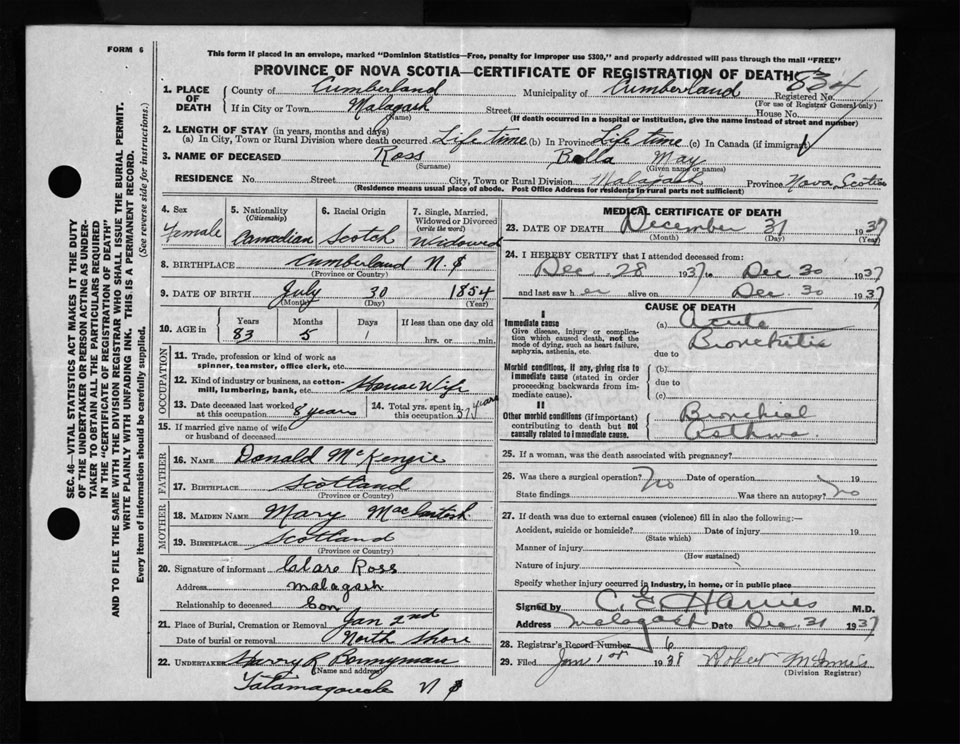 FORM 6
This form if placed in an envelope, marked "Dominion Statistics—Free, penalty for improper use $300," and properly addressed will pass through the mail "FREE"
PROVINCE OF NOVA SCOTIA—CERTIFICATE OF REGISTRATION OF DEATH
834
1. PLACE OF DEATH
County of Cumberland Municipality of Cumberland Registered No.
(For use of Registrar General only)
If in City or Town Malagash Street House No.
(Name) (If death occurred in a hospital or institution, give the name instead of street and number)
2. LENGTH OF STAY (in years, months and days)
(a) In City, Town or Rural Division where death occurred Life time (b) In Province Life time (c) In Canada (if immigrant)
3. NAME OF DECEASED Ross Bella May
(Surname) (Given name or names)
RESIDENCE No. Street City, Town or Rural Division Malagash Province Nova Scotia
(Residence means usual place of abode. Post Office Address for residents in rural parts not sufficient)
4. Sex Female
5. Nationality (Citizenship) Canadian
6. Racial Origin Scotch
7. Single, Married, Widowed or Divorced (write the word) Widowed
8. BIRTHPLACE Cumberland N.S
(Province or Country)
9. DATE OF BIRTH July 30 1854
(Month) (Day) (Year)
10. AGE in Years Months Days If less than one day old
83 5 1 hrs. or min.
OCCUPATION
11. Trade, profession or kind of work as spinner, teamster, office clerk, etc.
12. Kind of industry or business, as cotton-mill, lumbering, bank, etc. House Wife
13. Date deceased last worked at this occupation 8 years
14. Total yrs. spent in this occupation 57 years
15. If married give name of wife or husband of deceased
FATHER
16. NAME Donald McKenzie
17. BIRTHPLACE Scotland
(Province or Country)
MOTHER
18. MAIDEN NAME Mary MacIntosh
19. BIRTHPLACE Scotland
(Province or Country)
20. Signature of informant Ross
Address Malagash
Relationship to deceased Son
21. Place of Burial, Cremation or Removal Jan 2nd
Date of burial or removal North Shore
22. UNDERTAKER Harry R Bonnyman
(Name and address)
Tatamagouche N S
MEDICAL CERTIFICATE OF DEATH
23. DATE OF DEATH December 31 1937
(Month) (Day) (Year)
24. I HEREBY CERTIFY that I attended deceased from:
Dec 28 1937 to Dec 30 1937
and last saw her alive on Dec 30 1937
CAUSE OF DEATH
I
Immediate cause
Give disease, injury or complication which caused death, not the mode of dying, such as heart failure, asphyxia, asthenia, etc.
(a) Acute
Bronchitis
due to
Morbid conditions, if any, giving rise to immediate cause (stated in order proceeding backwards from immediate cause).
(b)
due to
(c)
II
Other morbid conditions (if important) contributing to death but not causally related to immediate cause.
Bronchial
Asthma.
25. If a woman, was the death associated with pregnancy?
26. Was there a surgical operation? No Date of operation 19
State findings Was there an autopsy? No
27. If death was due to external causes (violence) fill in also the following:—
Accident, suicide or homicide? Date of injury 19
(State which)
Manner of injury
(How sustained)
Nature of injury
Specify whether injury occurred in industry, in home, or in public place
Signed by C. E. Harries M.D.
Address Malagash Date Dec 31 1937
28. Registrar's Record Number 6
29. Filed Jan 1st 1938 Robert McInnis
(Division Registrar)
SEC. 46—VITAL STATISTICS ACT MAKES IT THE DUTY
OF THE UNDERTAKER OR PERSON ACTING AS UNDER-
TAKER TO OBTAIN ALL THE PARTICULARS REQUIRED
IN THE "CERTIFICATE OF REGISTRATION OF DEATH"
AND TO FILE THE SAME WITH THE DIVISION REGISTRAR WHO SHALL ISSUE THE BURIAL PERMIT.
WRITE PLAINLY WITH UNFADING INK. THIS IS A PERMANENT RECORD.
Every item of information should be carefully supplied. (See reverse side for instructions.)